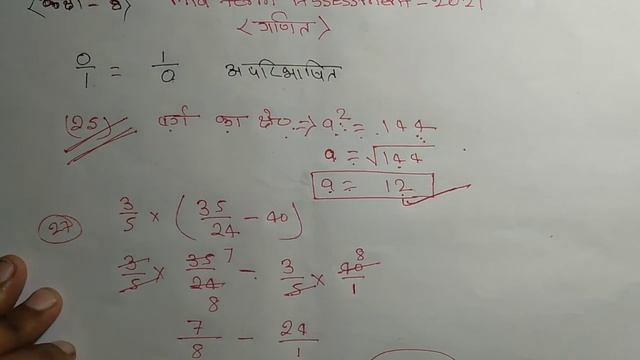 (कक्षा - 8) Mid Term Assessment - 2021
(गणित)
0/1 = 1/0 अपरिभाषित
(25) वर्ग का क्षे० => a² = 144
a = √144
a = 12
27 3/5 × (35/24 - 40)
3/5 × 35/24 7 8 - 3/5 × 40/1 8
7/8 - 24/1